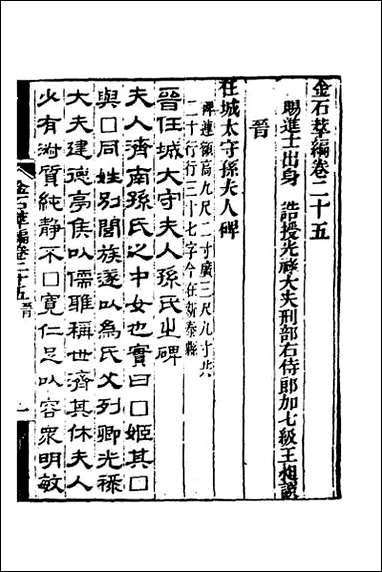 金石萃編卷二十五
賜進士出身 誥授光祿大夫刑部右侍郎加七級王昶譔
晉
任城太守孫夫人碑
碑連額高九尺二寸廣三尺九寸共
二十行行三十七字今在新泰縣
晉任城太守夫人孫氏之碑
夫人濟南孫氏之中女也實曰□姬其□
與□同姓別閥族遂以為氏父列卿光祿
大夫建德亭侯以儒雅稱世濟其休夫人
少有淑質純靜不□寬仁足以容眾明敏
金石萃編卷二十五 晉 一